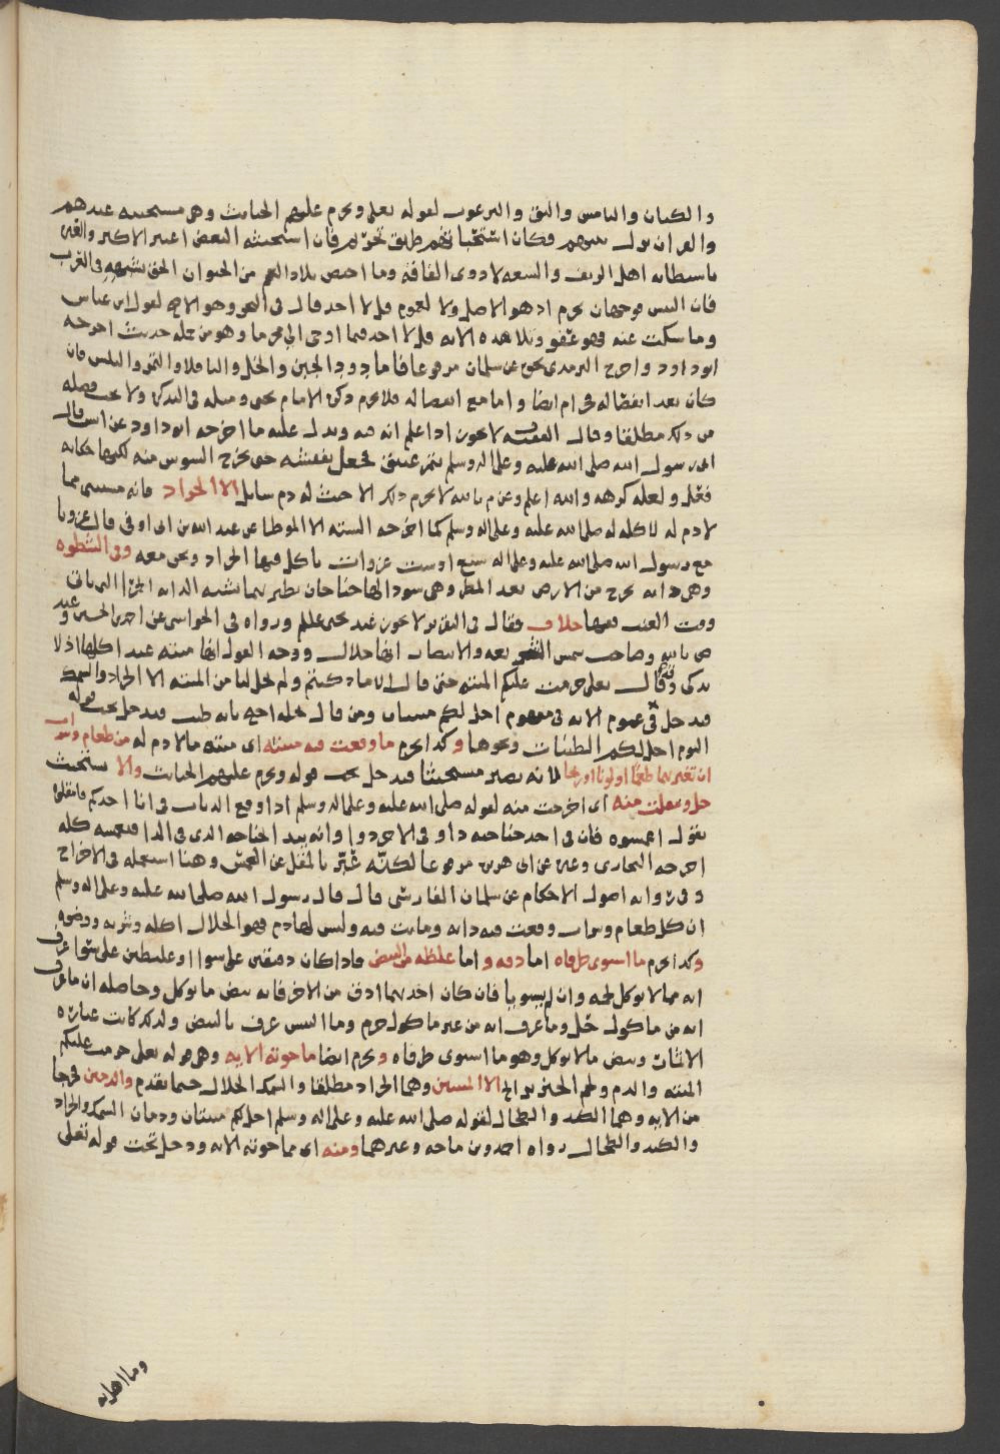 والكتان والنامس والبق والبرغوث لقوله تعلى ويحرم عليهم الخبائث وهى مستخبثه عندهم
والقران نزل بلغتهم فكان استخباثهم طريق تحريم فان استخبثه البعض اعتبر الاكثر والعبره
باستطابه اهل الريف والسعه لا ذوى الفاقه وما اختص ببلاد العجم من الحيوان الحق بشبهه فى العرب
فان التبس فوجهان يحرم اذ هو الاصل ولا لعموم قل لا اجد قال فى البحر وهو الاصح لقول ابن عباس
وما سكت عنه فهو عفو وتلا هذه الايه قل لا اجد فيما اوحى الى محرما وهو من جمله حديث اخرجه
ابو داود واخرج الترمذى نحوه عن سلمان مرفوعا فاما دود الجبن والخل والباقلا والتمر والبلس فان
كان بعد انفصاله حرام ايضا واما مع اتصاله فلا يحرم ذكره الامام يحيى ومثله فى التذكره ولا يجب فصله
من ذلك مطلقا وقال الفقيه لا يجوز اذا علم انه فيه ويدل عليه ما اخرجه ابو داود عن انس قال
اتى رسول الله صلى الله عليه وعلى اله وسلم بتمر عتيق فجعل يفتشه حتى يخرج السوس منه لكنها حكايه
فعل ولعله كرهه والله اعلم وعن م بالله لا يحرم ذلك الا حيث له دم سايل الا الجراد فانه مستثنى مما
لا دم له لاكله له صلى الله عليه وعلى اله وسلم كما اخرجه السته الا الموطا عن عبد الله بن ابى اوفى قال غزونا
مع رسول الله صلى الله عليه وعلى اله سبع او ست غزوات ناكل فيها الجراد ونحن معه وفى الشظوه
وهى دابه تخرج من الارض بعد المطر وهى سود الها جناحان تطير بهما تشبه الدابه التى تاتى
وقت العنب ففيها خلاف فقال فى التقرير لا يجوز عند يحيى ورواه فى الحواشى عن احمد بن الحسين وعند
ض وصاحب شمس والانتصار انها حلال ووجه القول انها ميته عند اكلها اذ لا
تذكى وقد قال تعلى حرمت عليكم الميته حتى قال الا ما ذكيتم ولم يحل لنا من الميته الا الجراد والسمك
فدخل فى عموم الايه فى مفهوم احل لكم ميتتان ومن قال بحله احتج بانه طيب فيدخل تحت قوله
اليوم احل لكم الطيبات ونحوها وكذا يحرم ما وقعت فيه ميته اى ميته ما لا دم له من طعام وشراب
ان تغير بها طعما او لونا او ريحا لانه يصير مستخبثا فيدخل تحت قوله ويحرم عليهم الخبائث والا يستخبث
حل ونقلت منه اى اخرجت منه لقوله صلى الله عليه وعلى اله وسلم اذا وقع الذباب فى انا احدكم
بقول اغمسوه فان فى احد جناحيه دا وفى الاخر دوا وانه يبدا بجناحه الذى فى الدا فيغمسه كله
اخرجه البخارى وغيره عن ابى هريره مرفوعا لكنه عبر بالمقل عن الغمس وهنا استعمله فى الاخراج
وفى روايه اصول الاحكام عن سلمان الفارسى قال قال رسول الله صلى الله عليه وعلى اله وسلم
ان كل طعام وشراب وقعت فيه دابه وماتت فيه وليس لها دم فهو الحلال اكله وشربه ووضوه
وكذا يحرم ما استوى طرفاه اما دقه واما غلظه من البيض فاذا كان دقيقين على سوا او غليظين على سوا عرف
انه مما لا يوكل لحمه وان لم يستويا فان كان احدهما ادق من الاخر فانه بيض ما يوكل وحاصله ان ما عرف
انه من ماكول حل وما عرف انه من غير ماكول حرم وما التبس عرف بالبيض ولذلك كانت عباره
الاثمار وبيض ما لا يوكل وهو ما استوى طرفاه ويحرم ايضا ما حوته الايه وهى قوله تعلى حرمت عليكم
الميته والدم ولحم الخنزير الخ الا الميتتين وهما الجراد مطلقا والسمك الحلال حسبما تقدم والدمين خرجا
من الايه وهما الكبد والطحال لقوله صلى الله عليه وعلى اله وسلم احل لكم ميتتان ودمان السمك والجراد
والكبد والطحال رواه احمد وبن ماجه وغيرهما ومنه اى مما حوته الايه ودخل تحت قوله تعلى
وما اهل به